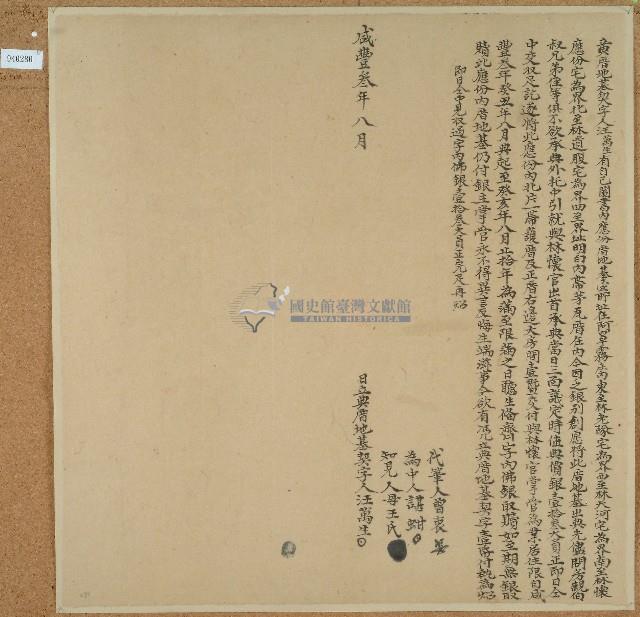 立典厝地基契字人汪萬生有自己鬮書內應份厝地基壹所址在阿罩霧庄東至林先隊宅為界西至林大河宅為界南至林懷
應份宅為界北至林道服宅為界四至界址明白內帶茅瓦厝在內今因乏銀別創愿將此厝地基出典先儘問房親伯
叔兄弟侄等俱不欲承典外托中引就與林懷官出首承典當日三面議定時值典價銀壹拾叁大員正即日仝
中交收足訖遂將此應份內北片一崙護厝及正厝右邊大房間壹暨交付與林懷官掌管為業居住限自咸
豐叁年癸丑年八月典起至癸亥年八月止拾年為滿至限滿之日聽生備齊契字內佛銀取贖如至期無銀取
贖此應份內厝地基仍付銀主掌管永不得異言反悔生端滋事今欲有憑立典厝地基契字壹帋付執為炤
即日仝中見收過字內佛銀壹拾叁大員正完足再炤
代筆人曾
為中人 謀
知見人母王氏
日立典厝地基契字人汪萬生
咸豐叁年八月
國史館臺灣文獻館
TAIWAN HISTORICA